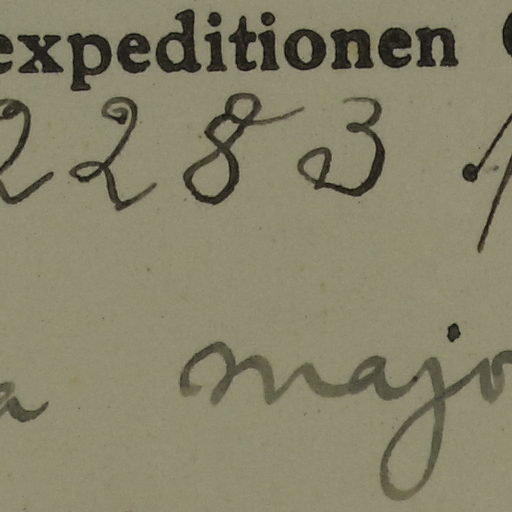 expeditionen
2283
a majo